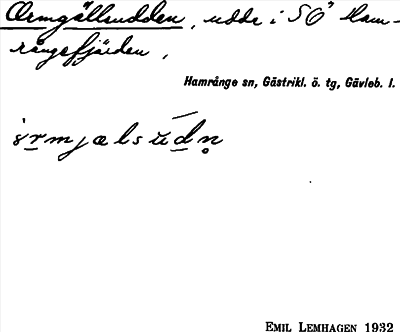 Ormgällsudden, udde i SÖ Ham-
rångefjärden,
Hamrånge sn, Gästrikl. ö. tg, Gävleb. l.
EMIL LEMHAGEN 1932